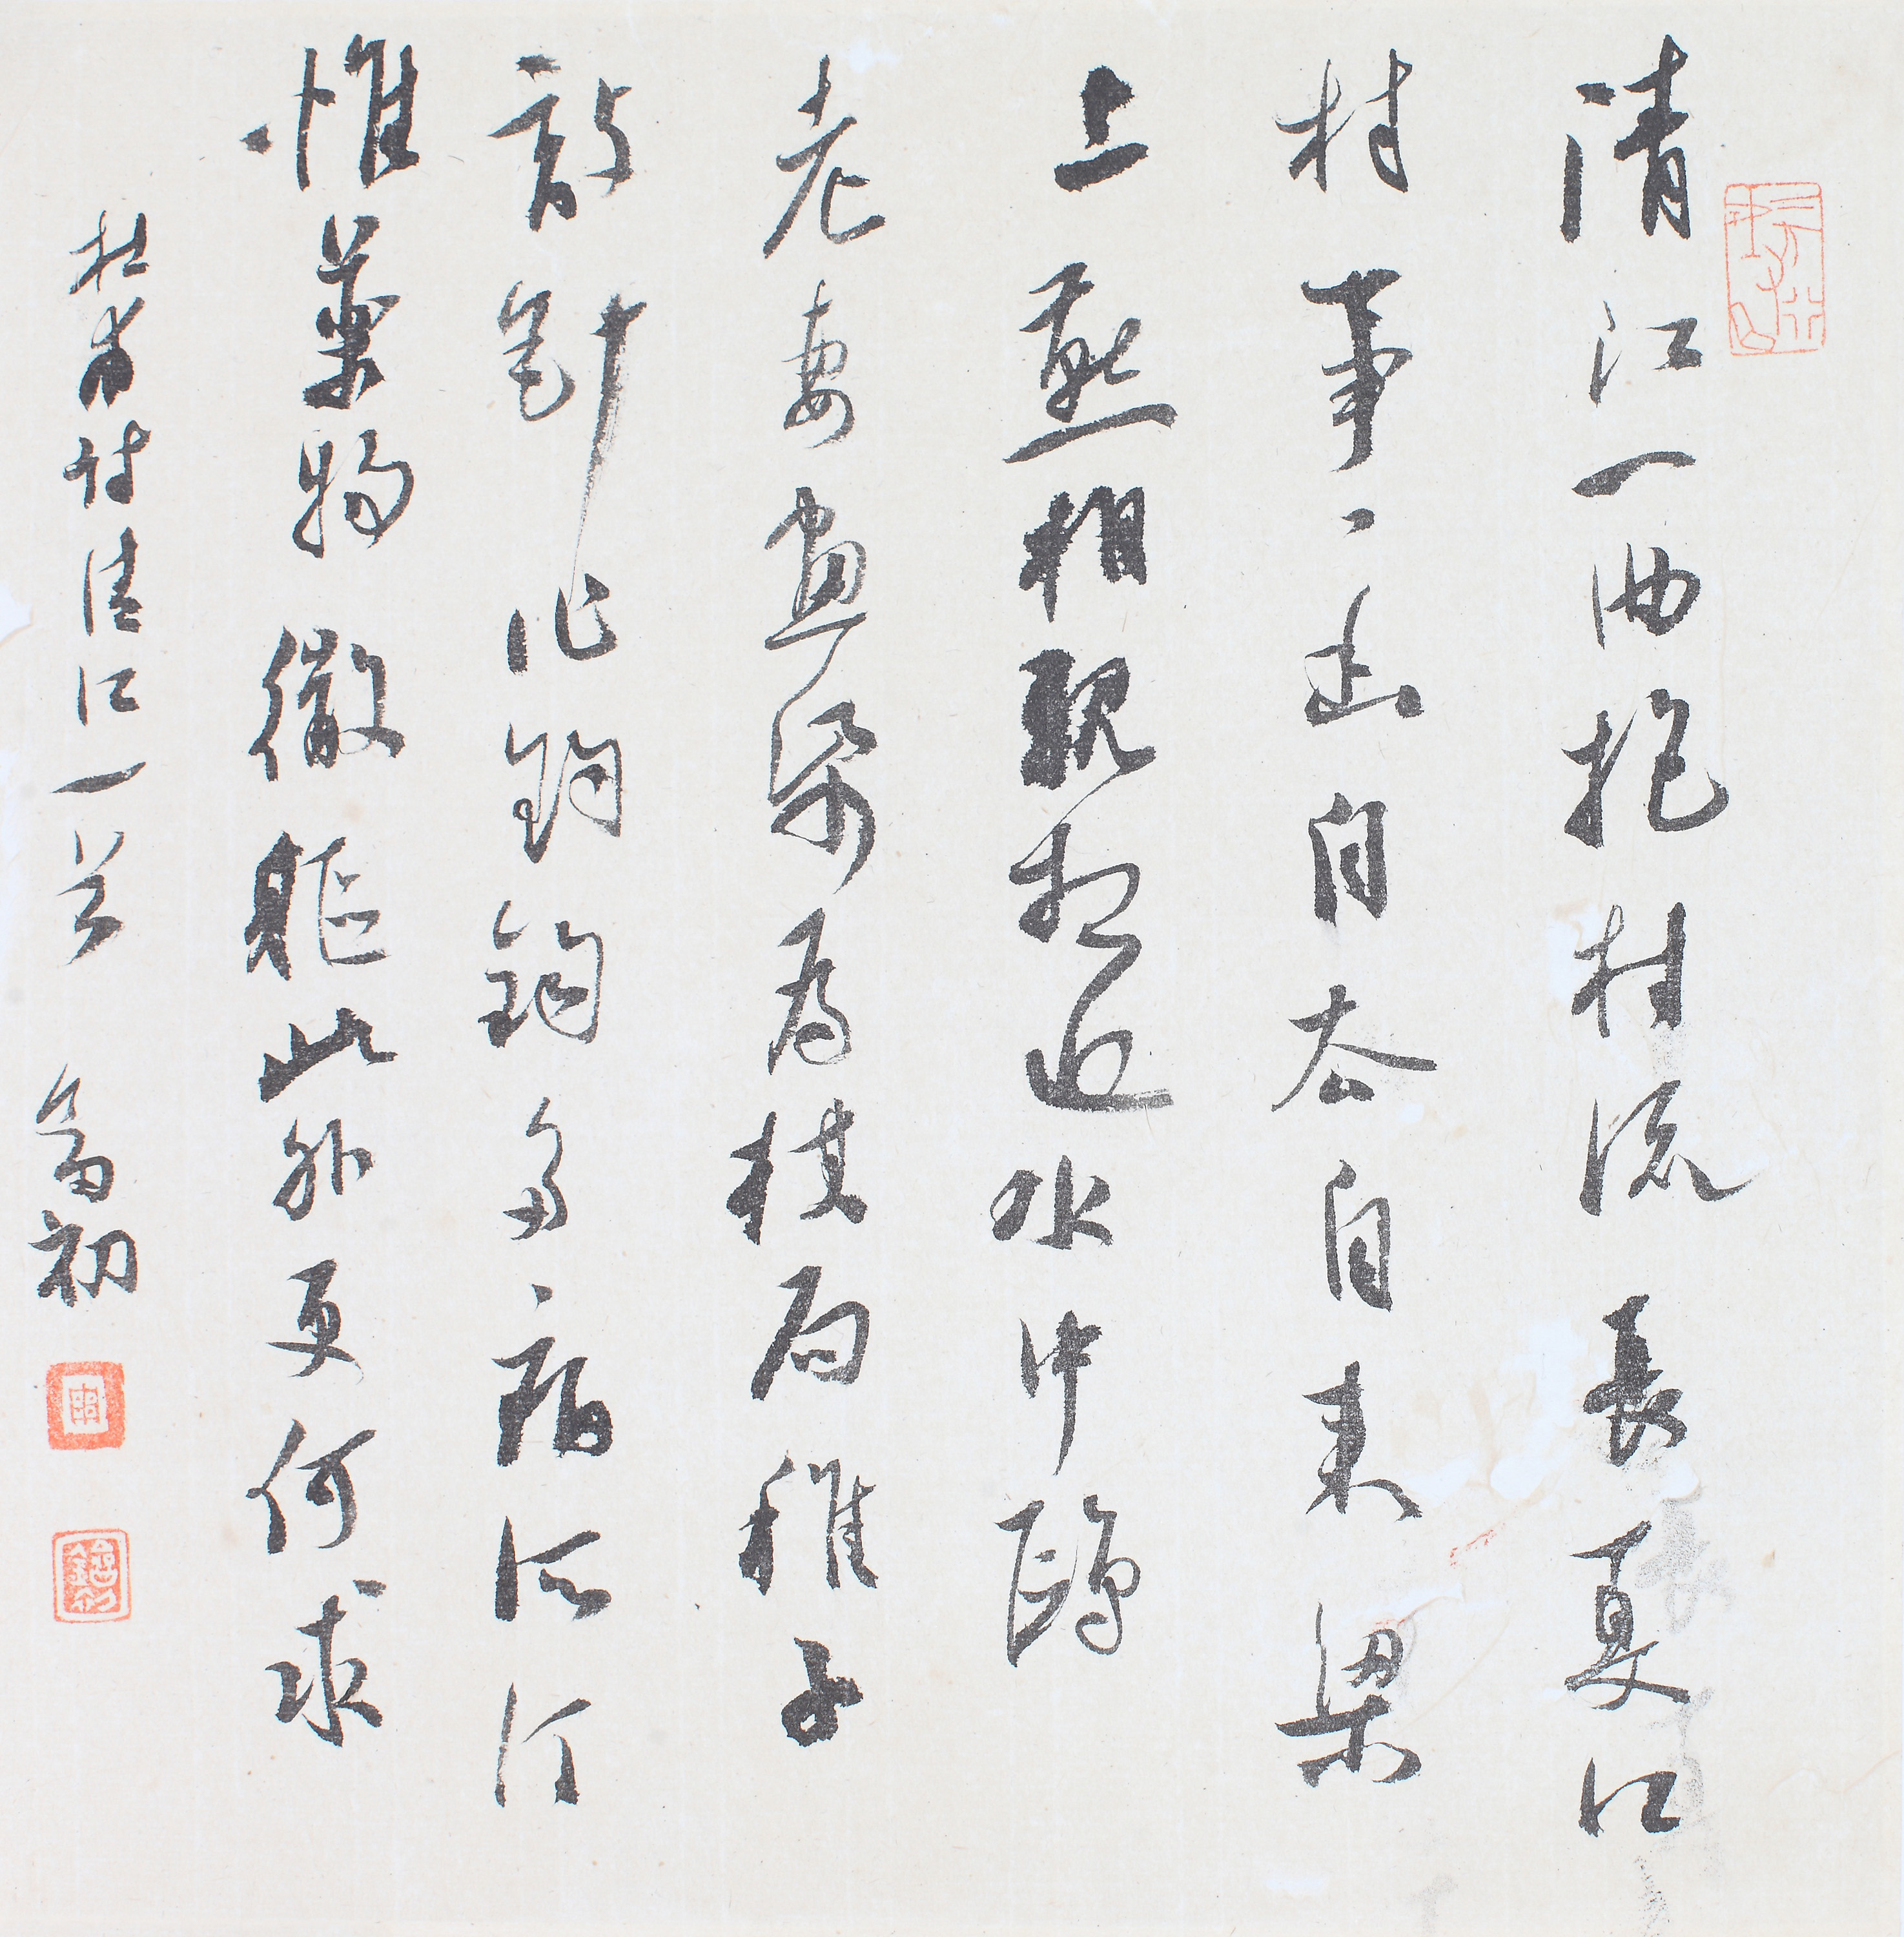 清江一曲抱村流長夏江
村事々幽自去自来梁
上燕相親相近水中鷗
老妻畫帋為棋局稚子
敲針作釣鉤多病所須
惟藥物微軀此外更何求
杜甫詩清江一首 初